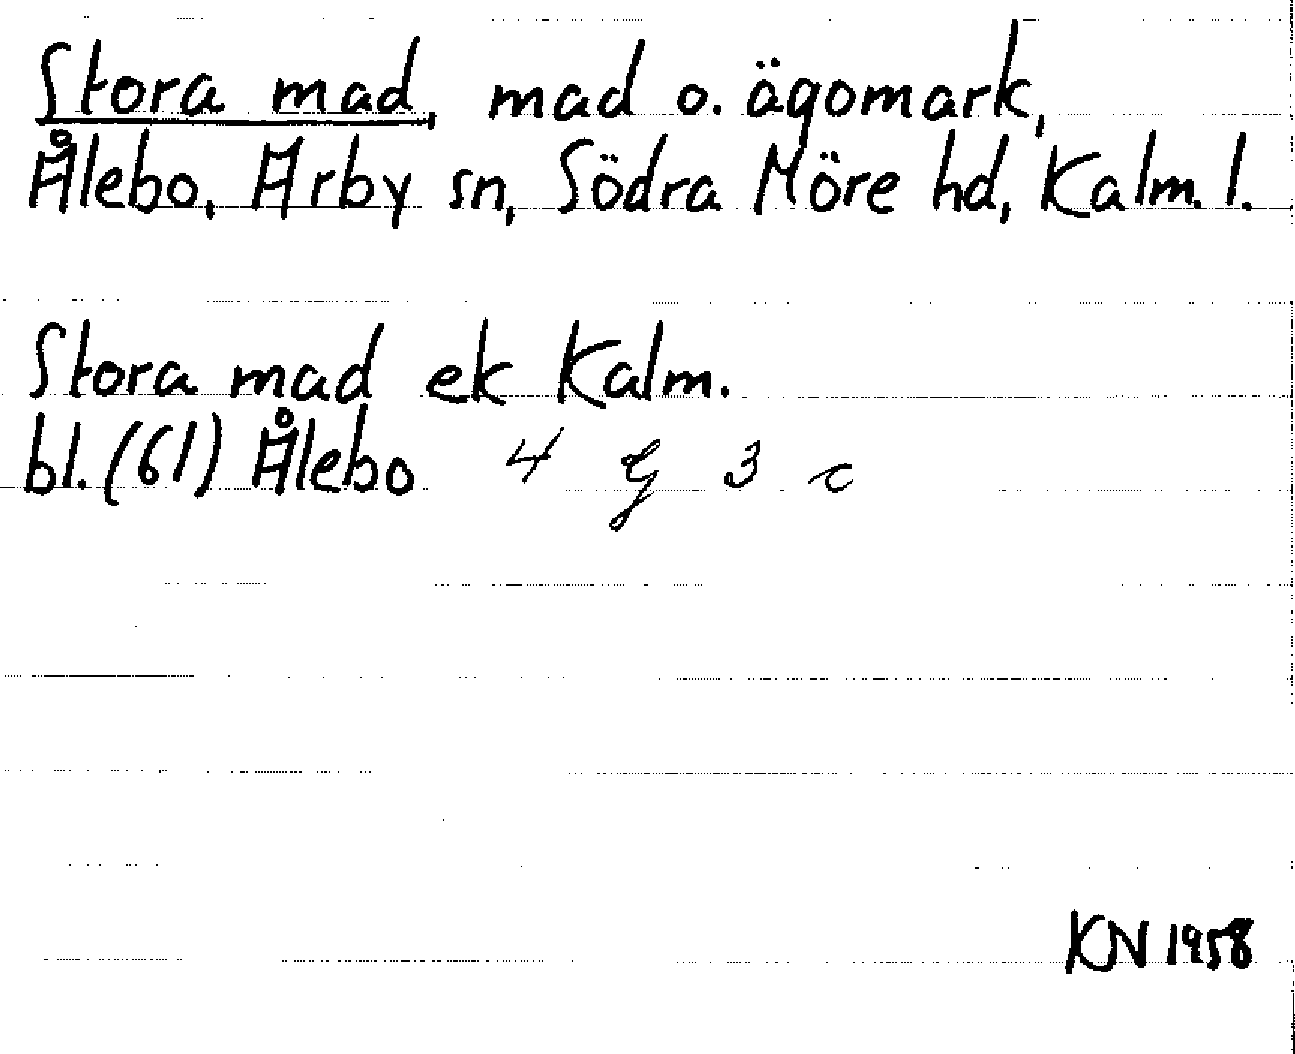 Stora mad, mad o. ägomark,
Ålebo, Arby sn, Södra Möre hd, Kalm. l.
Stora mad ek Kalm.
bl. (61) Ålebo 4 G 3 c
KN 1958